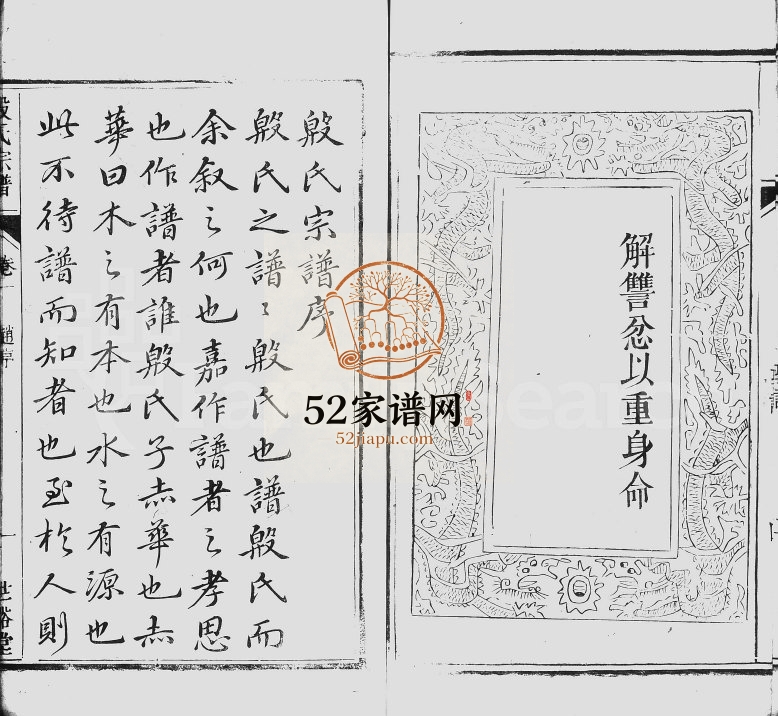 解讐忿以重身命
殷氏宗譜序
殷氏之譜〻殷氏也譜殷氏而
余叙之何也嘉作譜者之孝思
也作譜者誰殷氏子赤華也赤
華曰木之有本也水之有源也
此不待譜而知者也至於人則
殷氏宗譜
卷一
趙序
一
世裕堂
52家谱网
52jiapu.com